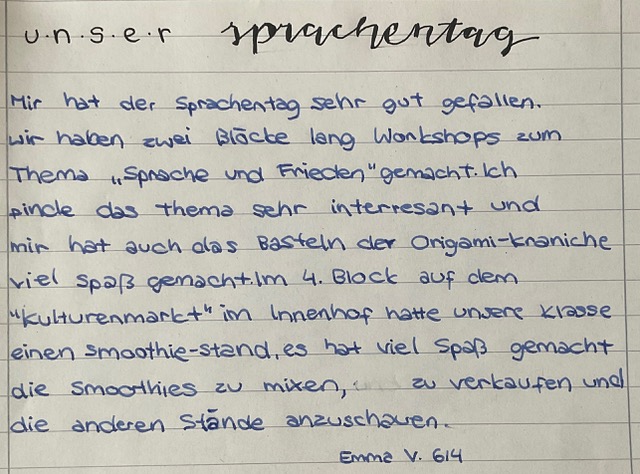 u.n.s.e.r sprachentag
Mir hat der Sprachentag sehr gut gefallen.
wir haben zwei Blöcke lang Workshops zum
Thema „Sprache und Frieden“ gemacht. Ich
finde das thema sehr interresant und
mir hat auch das Basteln der Origami-Kraniche
viel Spaß gemacht. Im 4. Block auf dem
"Kulturenmarkt" im Innenhof hatte unsere Klasse
einen smoothie-stand, es hat viel Spaß gemacht
die Smoothies zu mixen, zu verkaufen und
die anderen Stände anzuschauen.
Emma V. 614